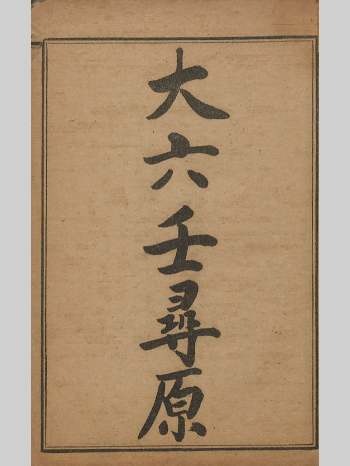 大六壬尋原